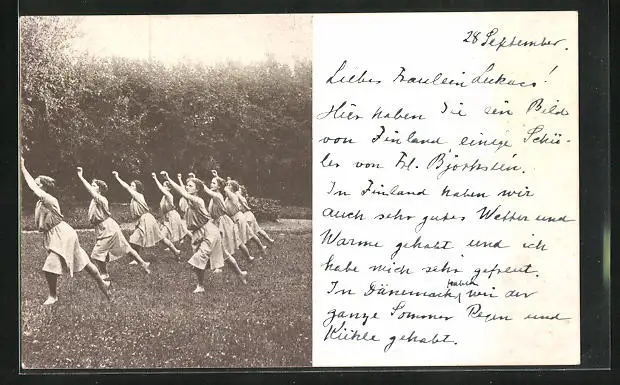 28 September.
Liebes Fraulein Lukacs!
Hier haben Sie ein Bild
von Finland, einige Schü-
ler von Frl. Björksten.
In Finland haben wir
auch sehr gutes Wetter und
Warme gehabt und ich
habe mich sehr gefreut.
In Dänemark haben wir der
ganze Sommer Regen und
Kühle gehabt.